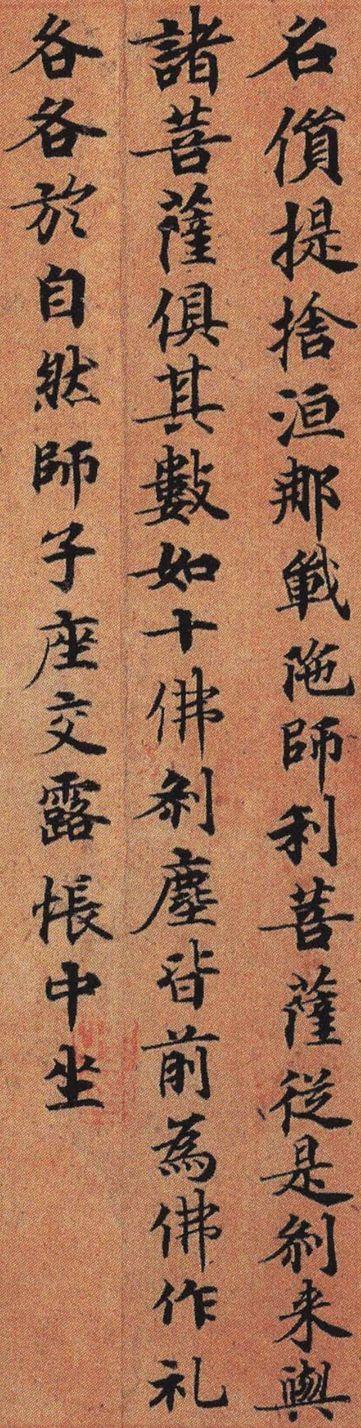 名質提捨洹那戰陁師利菩薩從是刹来與
諸菩薩俱其數如十佛刹塵皆前為佛作礼
各各於自然師子座交露帳中坐